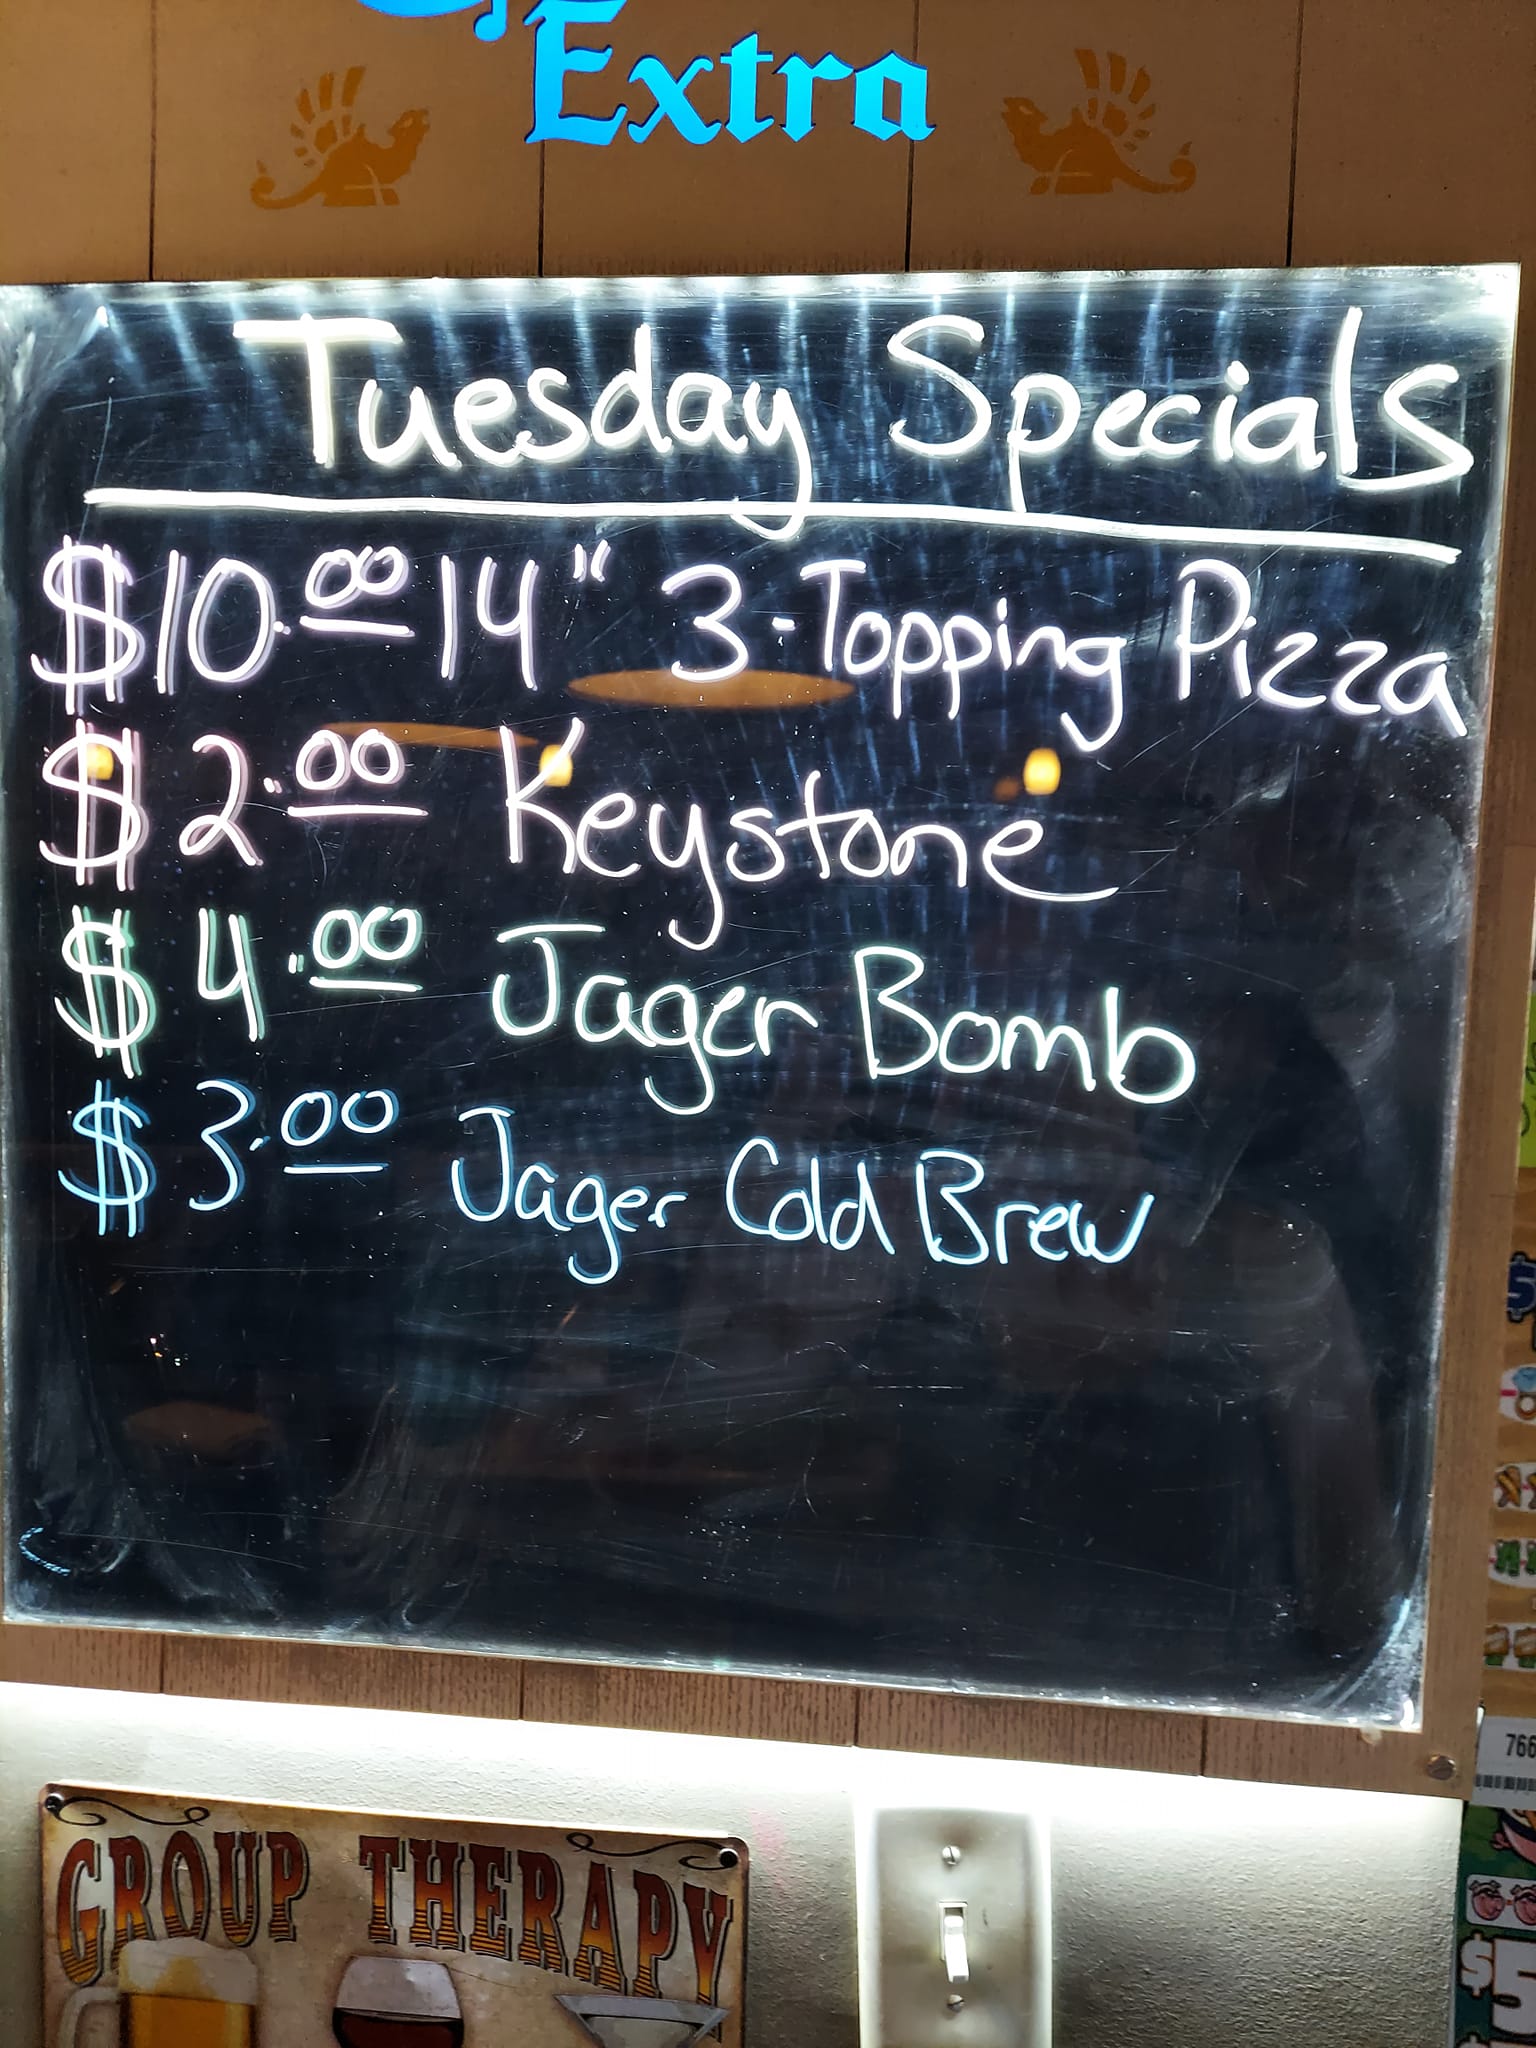 Extra
Tuesday Specials
$10.00 14" 3-Topping Pizza
$2.00 Keystone
$4.00 Jager Bomb
$3.00 Jager Cold Brew
GROUP THERAPY
766
$5